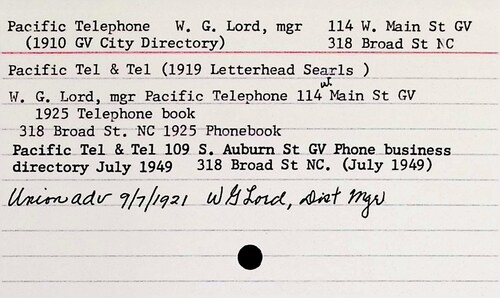 Pacific Telephone W. G. Lord, mgr 114 W. Main St GV
(1910 GV City Directory) 318 Broad St NC
Pacific Tel & Tel (1919 Letterhead Searls )
W. G. Lord, mgr Pacific Telephone 114 W. Main St GV
1925 Telephone book
318 Broad St. NC 1925 Phonebook
Pacific Tel & Tel 109 S. Auburn St GV Phone business
directory July 1949 318 Broad St NC. (July 1949)
Union adv 9/7/1921 W G Lord, Dist Mgr